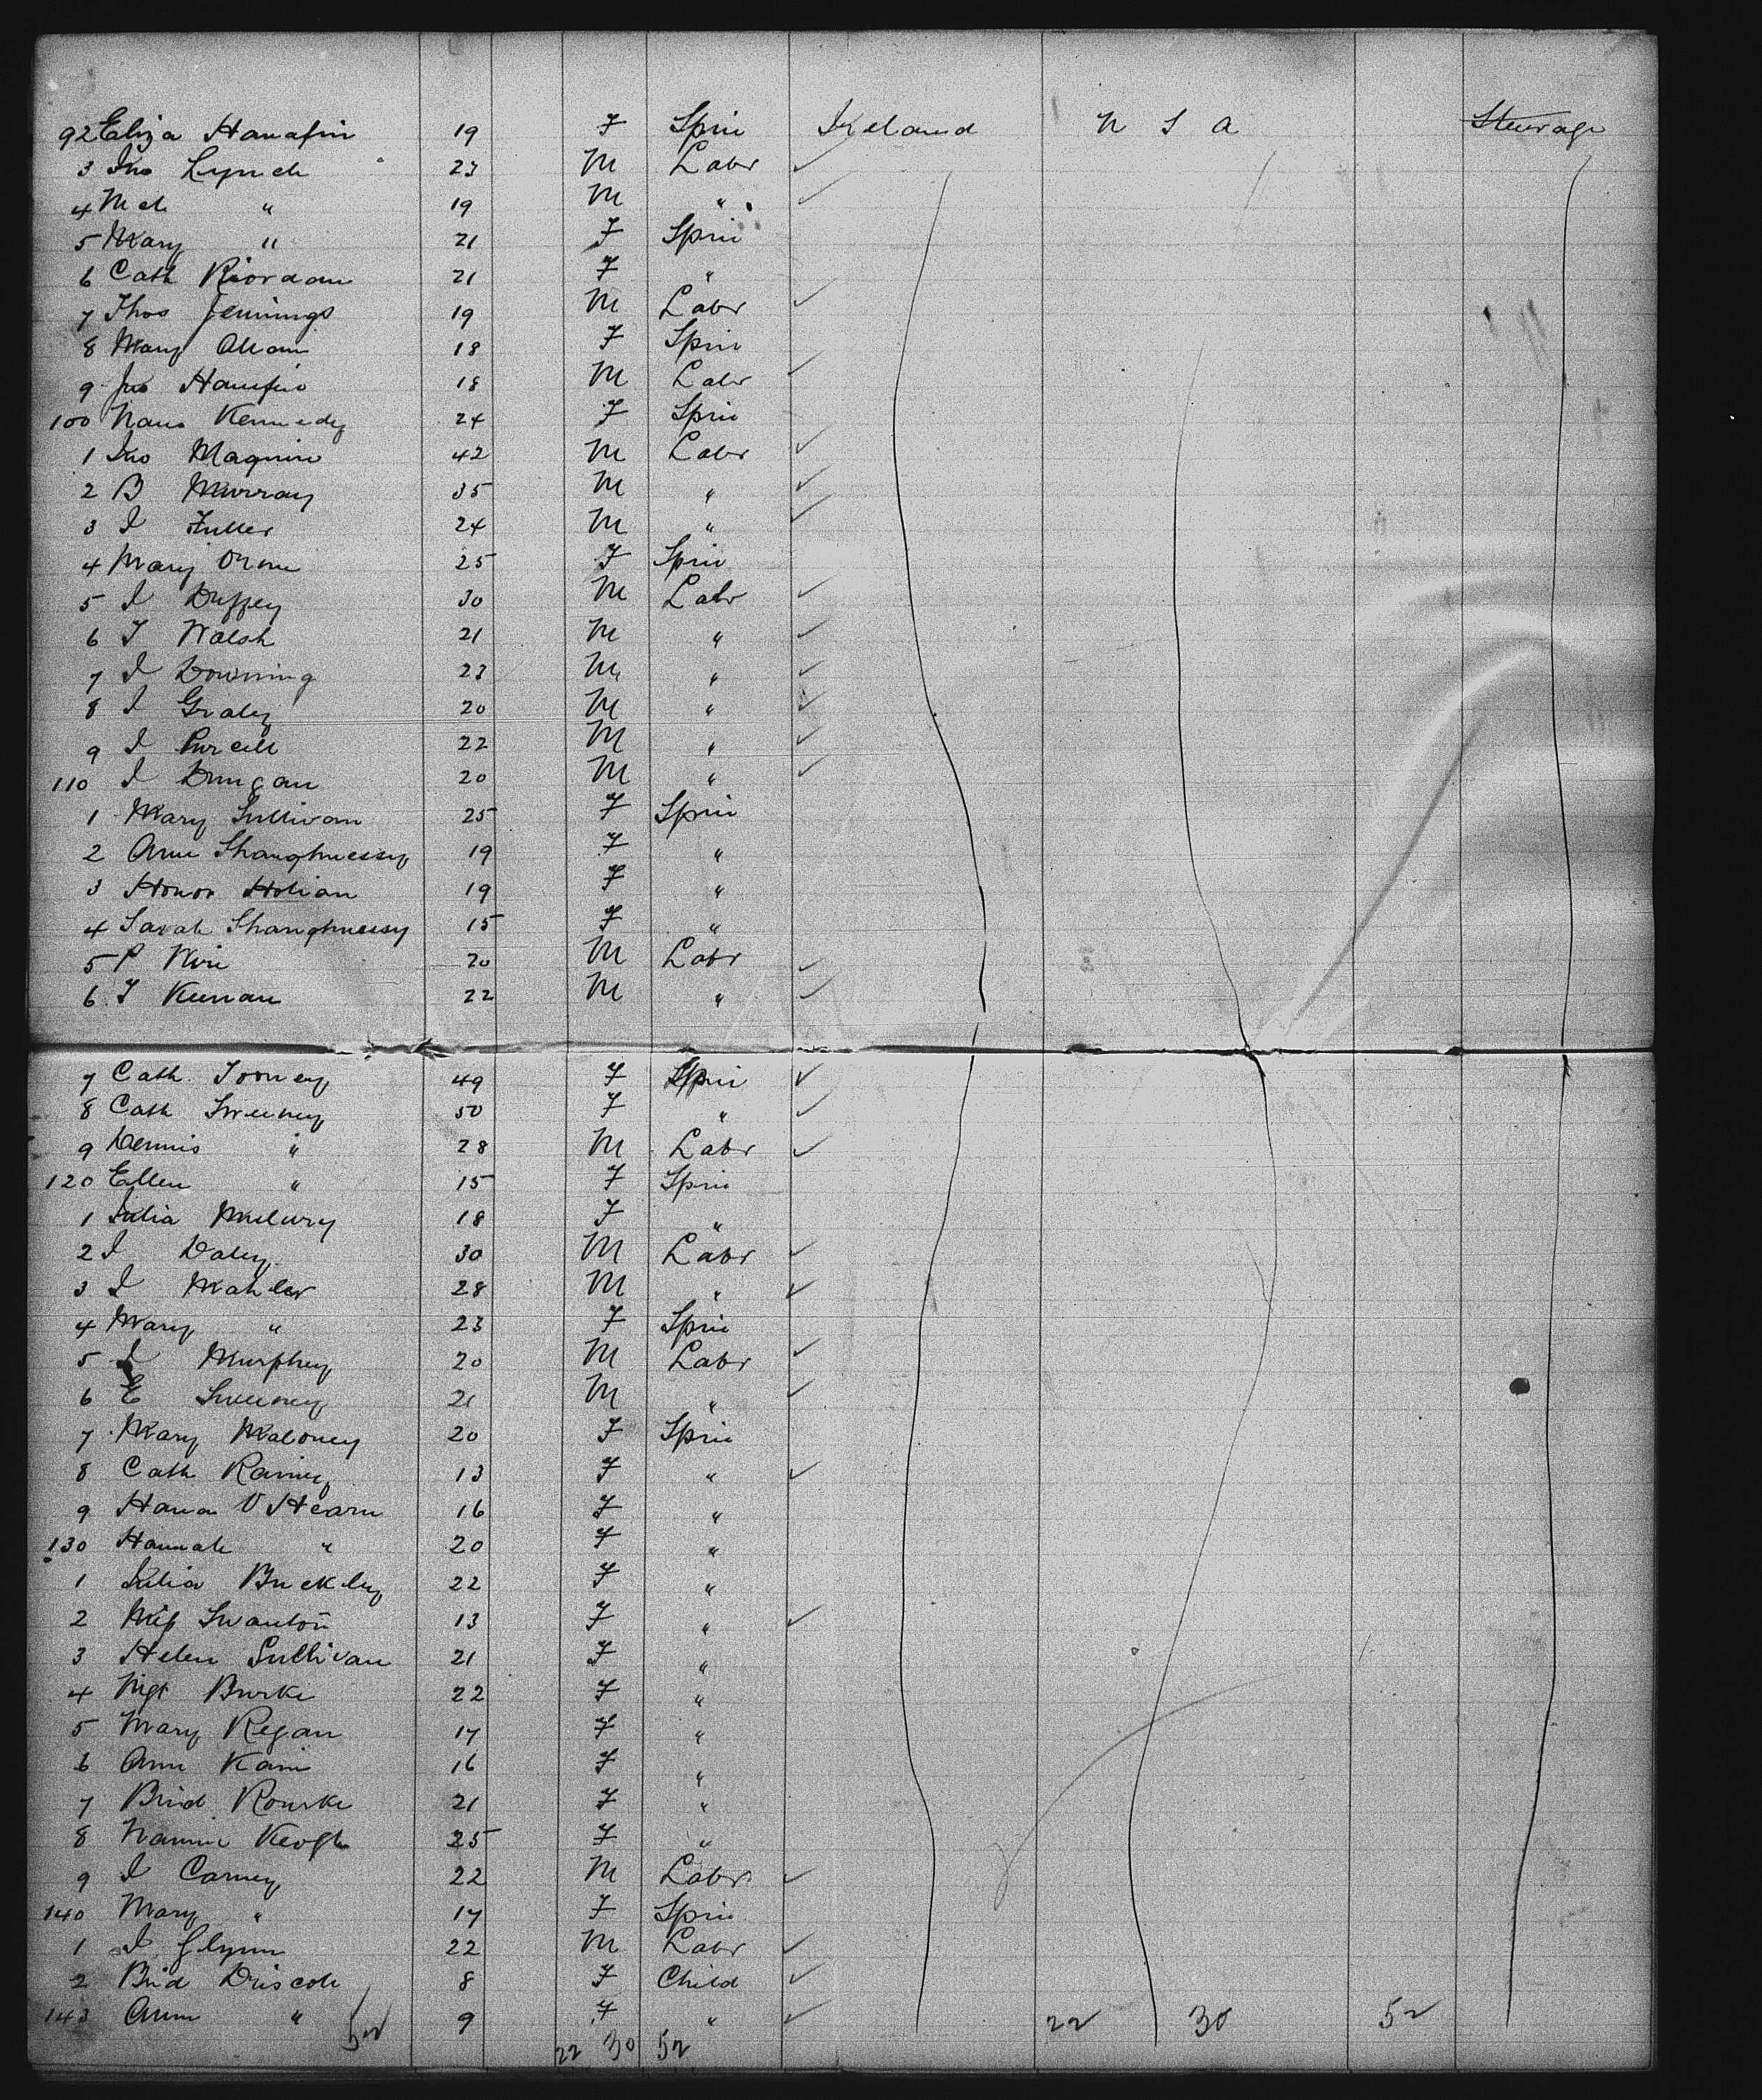 92 Eliza Hanafin 19 F Spin Ireland U S A Steerage
3 Jno Lynch 23 M Labr ✓
4 Mch " 19 M " ✓
5 Mary " 21 F Spin
6 Cath Riordan 21 F "
7 Thos Jennings 19 M Labr ✓
8 Mary 18 F Spin
9 Jno Hanifin 18 M Labr ✓
100 Kennedy 24 F Spin
1 Jno Maguire 42 M Labr ✓
2 B Murray 35 M " ✓
3 J Fuller 24 M " ✓
4 Mary 25 F Spin
5 J Duffey 30 M Labr ✓
6 T Walsh 21 M " ✓
7 J Downing 23 M " ✓
8 J Graley 20 M " ✓
9 J Purcell 22 M " ✓
110 J Dungan 20 M " ✓
1 Mary Sullivan 25 F Spin
2 Ann Shaughnessy 19 F "
3 Honor Holian 19 F "
4 Sarah Shaughnessy 15 F "
5 P 20 M Labr ✓
6 T Keenan 22 M " ✓
7 Cath Toomey 49 F Spin ✓
8 Cath Sweeney 50 F " ✓
9 Dennis " 28 M Labr ✓
120 Ellen " 15 F Spin
1 Julia 18 F "
2 J Daley 30 M Labr ✓
3 J Mahler 28 M " ✓
4 Mary " 23 F Spin
5 J Murphey 20 M Labr ✓
6 E Sweeney 21 M " ✓
7 Mary Maloney 20 F Spin
8 Cath Rainey 13 F " ✓
9 Hana O Hearn 16 F "
130 Hannah " 20 F "
1 Julia Buckley 22 F "
2 Swanton 13 F " ✓
3 Helen Sullivan 21 F "
4 Mgt Burke 22 F "
5 Mary Regan 17 F "
6 Ann Kain 16 F "
7 Brid Rourke 21 F "
8 Nannie Keogh 25 F "
9 J Carney 22 M Labr ✓
140 Mary " 17 F Spin
1 J Glynn 22 M Labr ✓
2 Brid Driscoll 8 F Child ✓
143 Ann " 9 F " ✓ 22 30 52
52 22 30 52